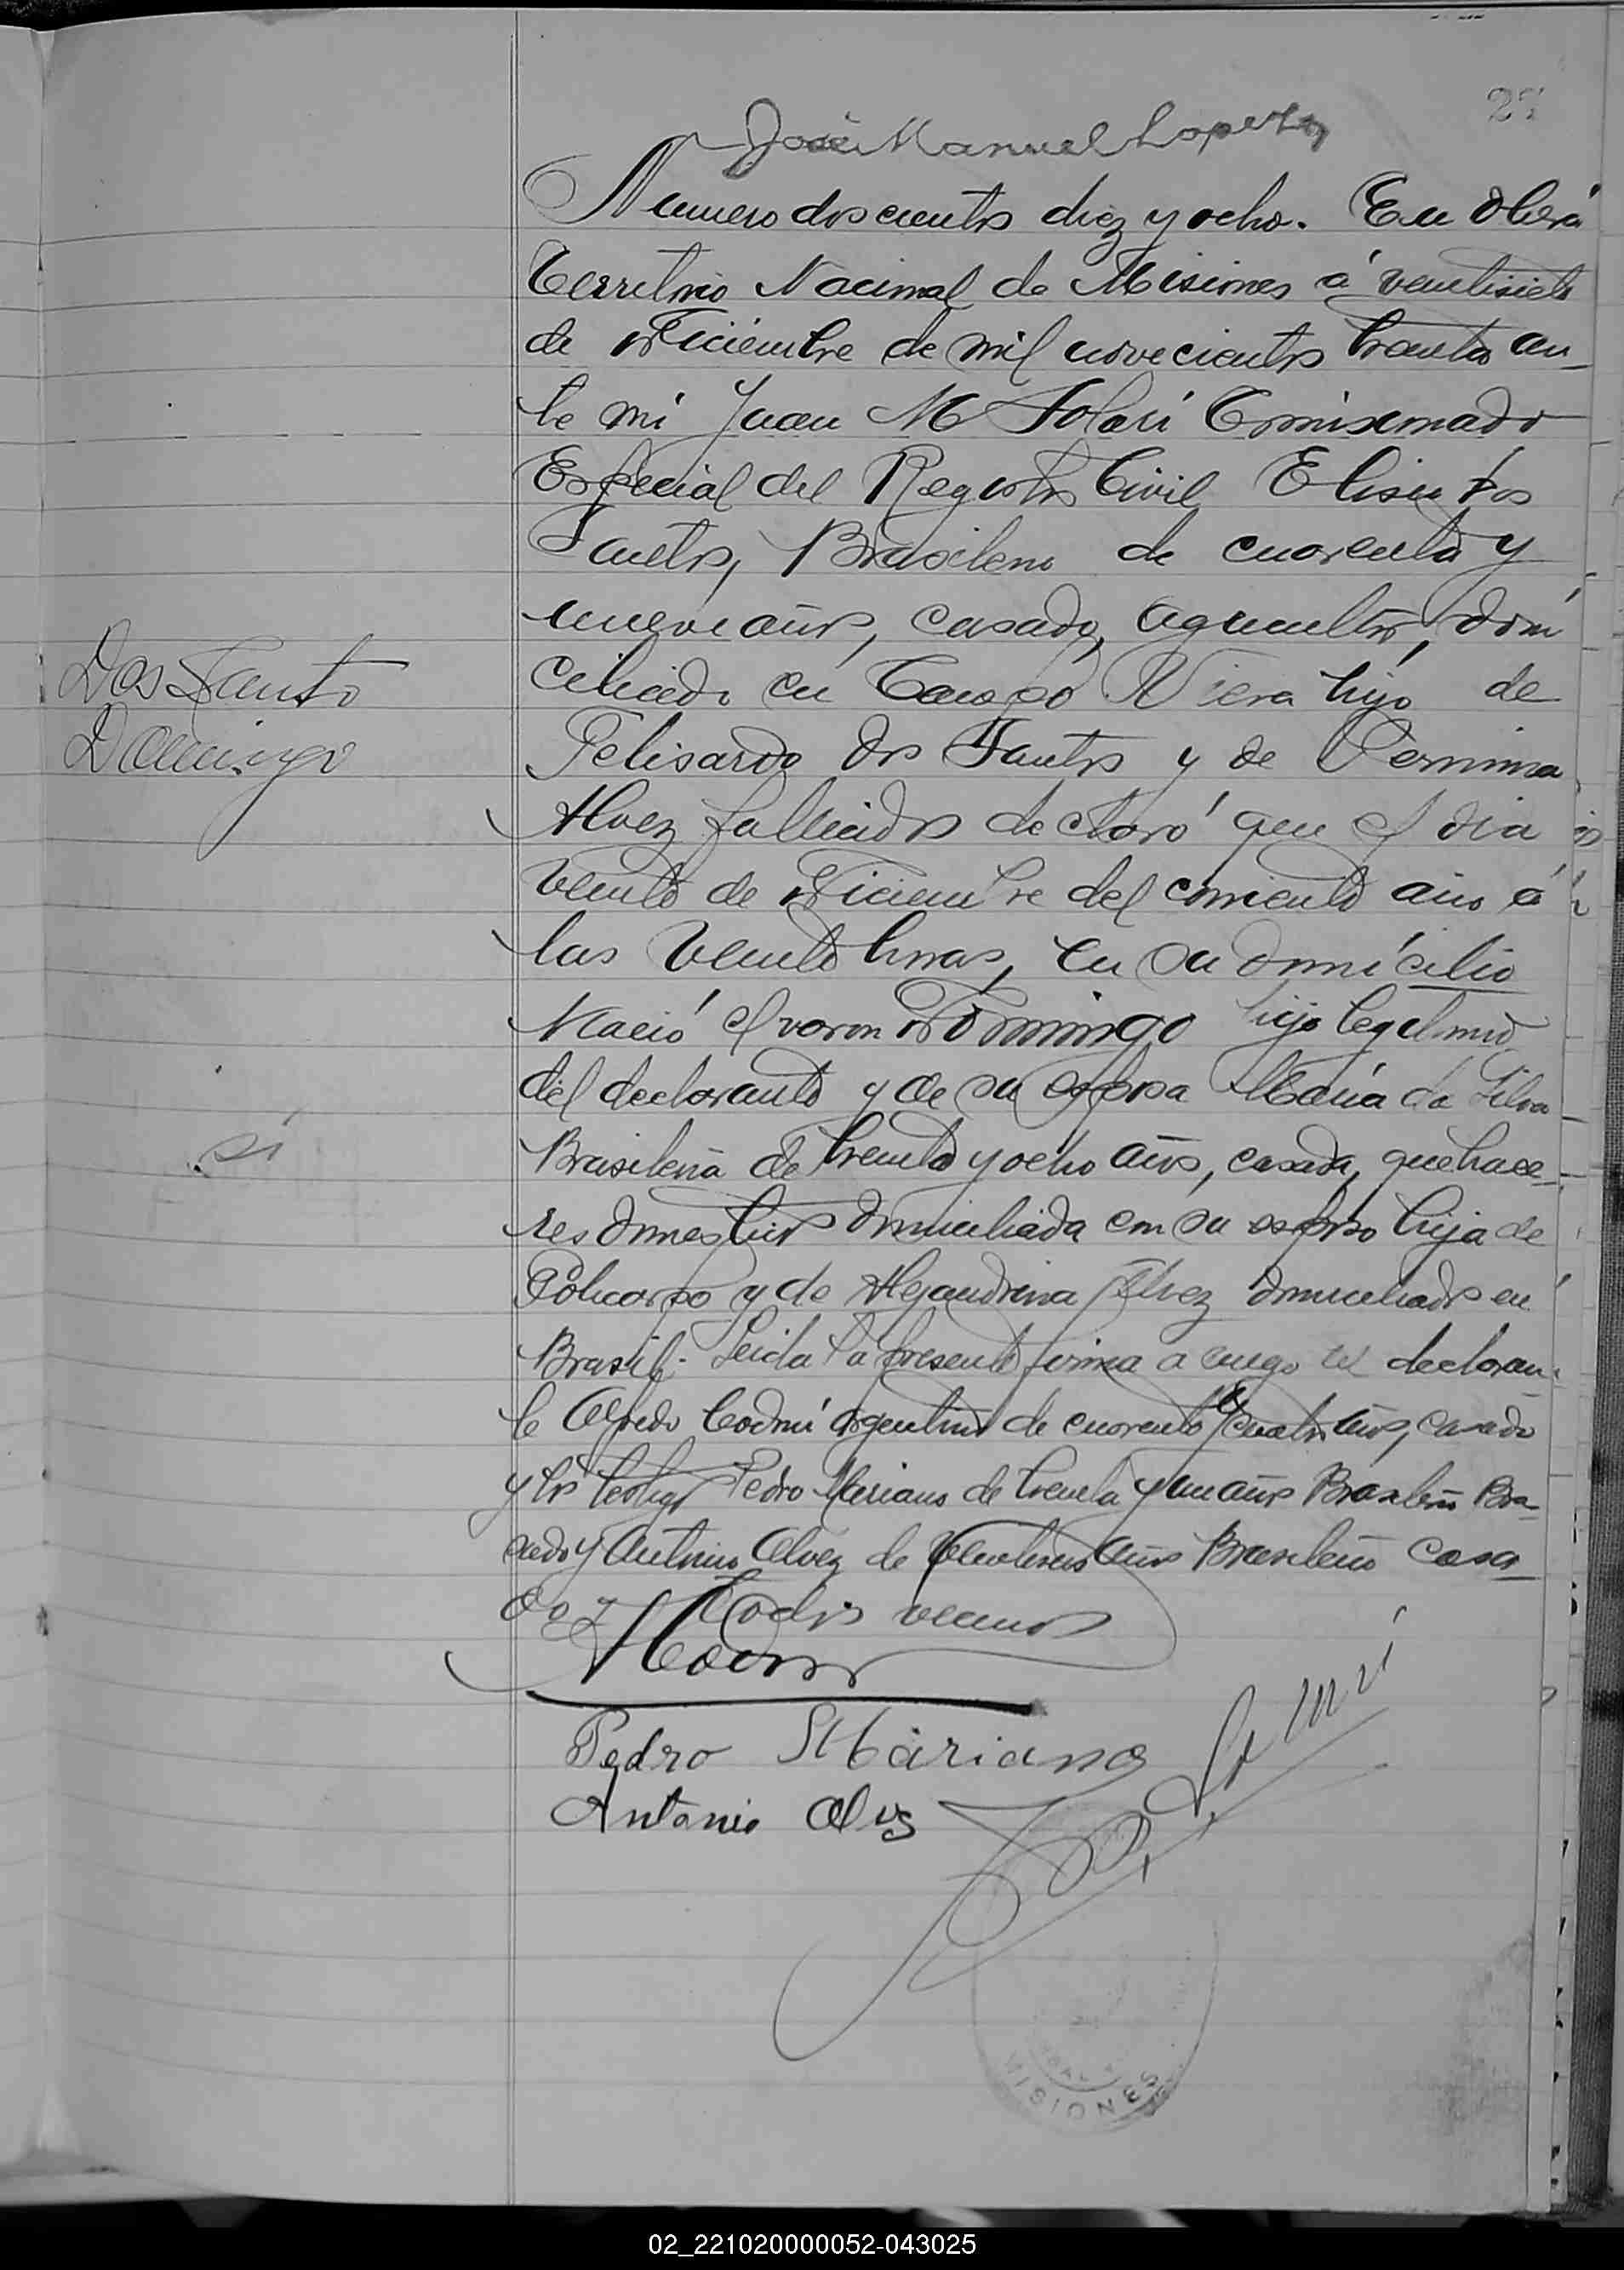 27
José Manuel Lopez
Numero doscientos diez y ocho. En Oberá
Territorio Nacional de Misiones á veintisiete
de Diciembre de mil novecientos treinta an_
te mi Juan M Solari Comisionado
Especial del Registro Civil Eliseu dos
Santos, Brasileno de cuarenta y
nueve años, casado, agricultor, domi
ciliado en Campo Viera hijo de
Felisardo dos Santos y de
Alvez fallecidos declaró que el dia
veinte de Diciembre del corriente año á
las veinte horas, en su domicilio
Nació el varon Domingo hijo legitimo
del declarante y de su esposa Maria da Silva
Brasileña de treinta y ocho años, casada, quehace_
res domesticos domiciliada con su esposo hija de
Policarpo y de Alejandrina Alvez domiciliados en
Brasil. Leida la presente firma a ruego del declaran
te Alfredo argentino de cuarenta y cuatro años, casado
y los testigos Pedro Mariano de treinta y un años Brasileño
y Antonio Alvez de años Brasileño casa_
do y Todos vecinos
Dos Santo
Domingo
si
Pedro Mariano
Antonio Alvs
MISIONES
02_221020000052-043025